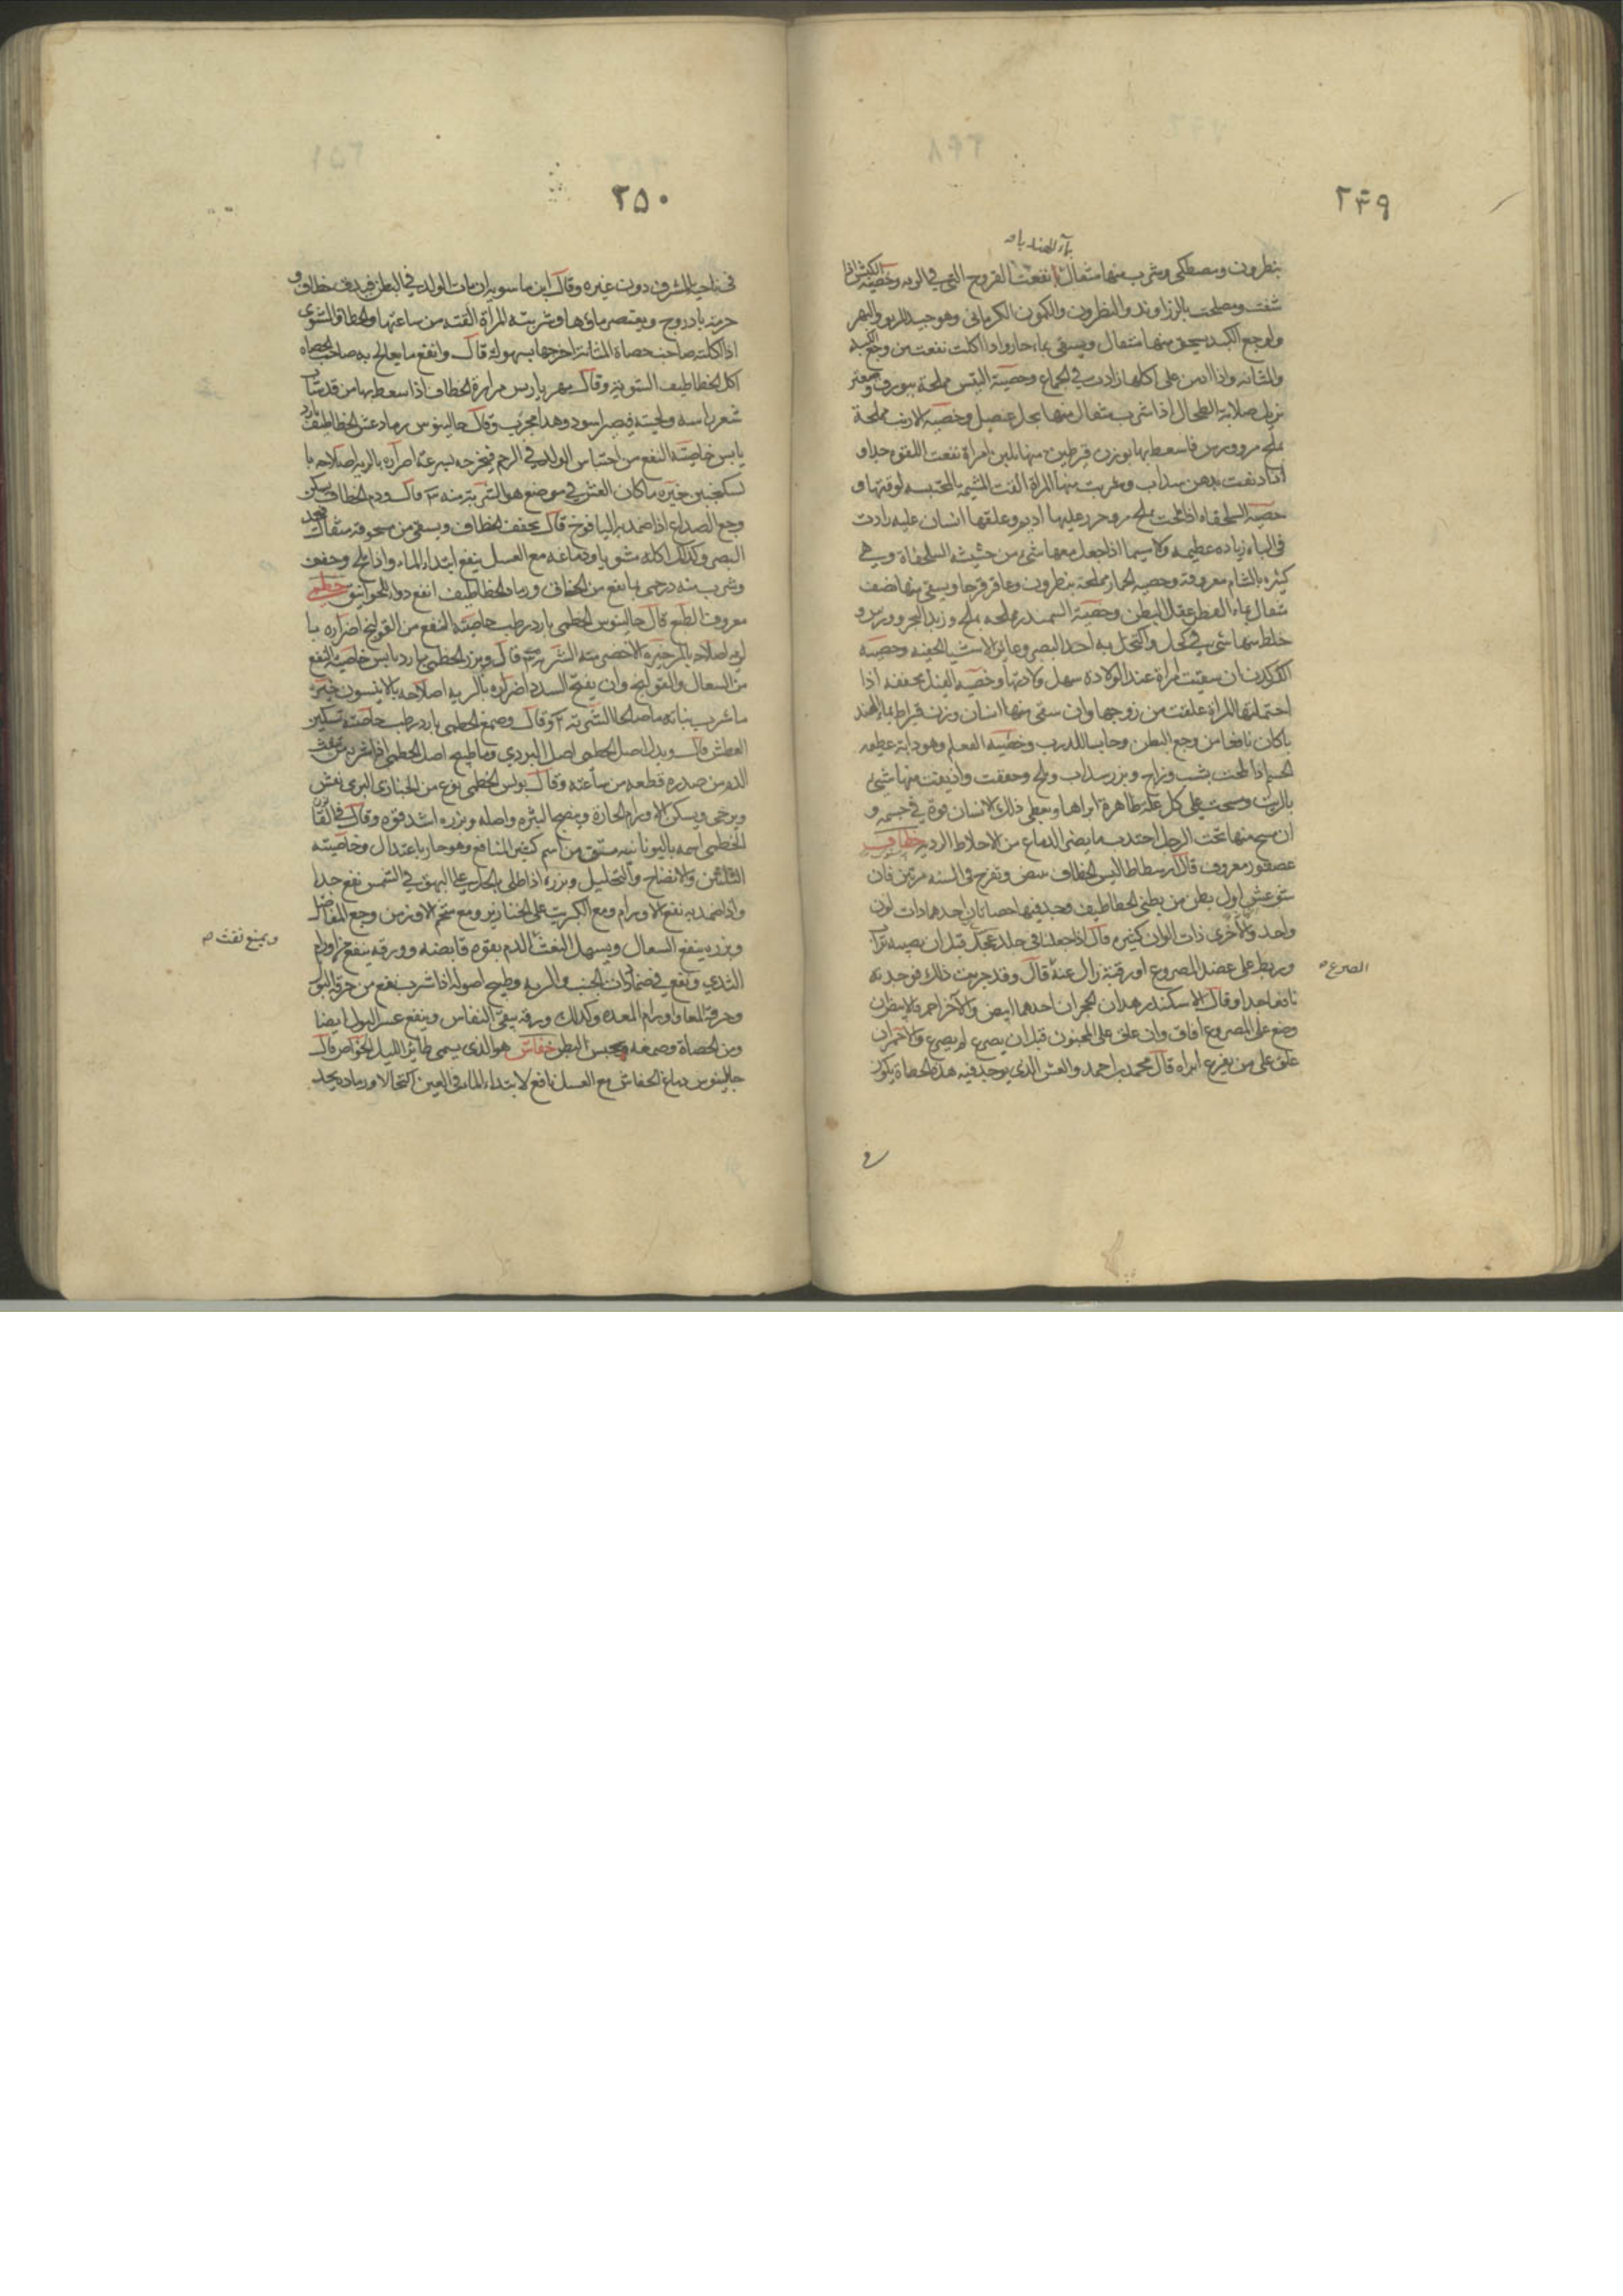 ٢٤٩
بنطرون ومصطكى وشرب منها مثقال نفعت القروح التي في الريه وخصيه الكبش اذا
شفت وملحت بالزراوند والنطرون والكمون الكرماني وهو جيد للربو والبهر
ولوجع الكبد يسحق منها مثقال ويسقى بماء حار واذا اكلت نفعت من وجع الكبد
والمثانه واذا ادمن على اكلها زادت في الجماع وخصية التيس مملحة ببورق وصعتر
تزيل صلابة الطحال اذا شرب مثقال منها بخل عنصل وخصيه الارنب مملحة
بملح مر وورس فاسعط بها بوزن قيرطين منها بلبن امراة نفعت اللقوه جدا و
اذا دفت بدهن سداب وشربت منها المراة القت المشيمه المحتبسه لوقتها و
خصية السلحفاه اذا ملحت بملح مر وخرز عليها اديم وعلقها انسان عليه زادت
في الباه زياده عظيمه ولا سيما اذا جعل معها شيء من حشيشه السلحفاة وهي
كثيره بالشام معروفة وخصيه الحمار مملحة بنطرون وعاقر قرحا ويسقى منها نصف
مثقال بماء العفص عقل البطن وخصية السمندر مملحه بملح وزبد البحر وورس و
خلط منها شيء في كحل واكتحل به احد البصر وعاين الاشيا الخفيه وخصيه
الكركدن ان سقيت امراة عند الولاده سهل ولادتها وخصيه الفيل مجففه اذا
احتملتها المراة علقت من زوجها وان سقى منها انسان وزن قيراط بماء الهند
باكان نافعا من وجع البطن وحابسا للذرب وخصيه
اذا ملحت بشب وزاج وبزر سداب وملح وجففت واذيفت منها شيء
بالزيت ومسحت على كل علة ظاهرة ابراها ويعطى ذلك الانسان قوة في جسمه و
ان مسح منها تحت الرجل اجتذب ما يضر الدماغ من الاخلاط الرديه خطاف
عصفور معروف قال ارسطاطاليس الخطاف يبيض ويفرخ في السنه مرتين فان
شق عش اول بطن من بطني الخطاطيف وجد فيها حصاتان احدهما ذات لون
واحد والاخرى ذات الوان كثيره قال اذا جعلتا في جلد عجل قبل ان يصيبه تراب
وربط على عضد المصروع او رقبته زال عنه قال وقد جربت ذلك فوجدته
الصرع صح
نافعا جدا وقال الاسكندر هذان الحجران احدهما ابيض والاخر احمر فالابيض ان
وضع على المصروع افاق وان علق على المجنون قبل ان يصرع لم يصرع والاحمر ان
علق على من يفزع ابراه قال محمد بن احمد والعش الذي يوجد فيه هذه الحصاة يكون
في
٢٥٠
في ناحية المشرق دون غيره وقال ابن ماسويه ان مات الولد في البطن فيدق خطاف و
حزمة بادروج ويعتصر ماؤها وشربته المراة القته من ساعتها والخطاف المشوى
اذا اكلته صاحب حصاة المثانة اخرجها بسهولة قال وانفع ما يعالج به صاحب الحصاه
اكل الخطاطيف المشوية وقال مهرياريس مرارة الخطاف اذا سعط بها من قد شاب
شعر راسه ولحيته فيصير اسود وهذا مجرب وقال جالينوس رماد عش الخطاطيف بارد
يابس خاصيته النفع من احتباس الولد في الرحم فيخرجه بسرعة اضراره بالريه اصلاحه با
لسكنجبين خيره ما كان العش في موضع هو الشربة منه ٣ قال ودم الخطاف يسكن
وجع الصداع اذا ضمد به اليافوخ قال يجفف الخطاف ويسقى من سحوقه مثقال يحد
البصر وكذلك اكله مشويا ودماغه مع العسل ينفع ابتداء الماء واذا ملح وجفف
وشرب منه درخمى ما ينفع من الخناق ورماد الخطاطيف انفع دواء للخوانيق خطمي
معروف الطبع قال جالينوس الخطمي بارد رطب خاصيته النفع من القولنج اضراره با
لريه اصلاحه بالمرخيره الاخضر منه الشربة ٣ قال وبزر الخطمي بارد يابس خاصيته النفع
من السعال والقولنج وان يفتح السدد اضراره بالريه اصلاحه بالانيسون خيره
ما شرب بنباته ما صالحا الشربة ٢ وقال وصمغ الخطمي بارد رطب خاصيته تسكين
العطش قال وبدل اصل الخطمي اصل البردي وما طبيخ اصل الخطمي اذا شربه من نفث
الدم من صدره قطعه من ساعته وقال بولس الخطمي نوع من الخبازى البرى يفش
ويرخى ويسكن الاورام الحارة وينضج البثره واصله وبزره اشد قوه وقال في القانون
الخطمي اسمه باليونانيه مشتق من اسم كثير المنافع وهو حار باعتدال وخاصيته
التليين والانضاج والتحليل وبزره اذا طلى بالخل على البهق في الشمس نفع جدا
واذا ضمد به نفع الاورام ومع الكبريت على الخنازير ومع شحم الاوز من وجع المفاصل
وبزره ينفع السعال ويسهل النفث الدم بقوه قابضه وورقه ينفع من اورام
ويمنع نفث صح
الثدي ويقع في ضمادات الجنب والريه وطبيخ اصوله اذا شرب نفع من حرقة البول
وحرقة المعا واورام المعده وكذلك ورقه ينقي النفاس وينفع عسر البول ايضا
ومن الحصاة وصمغه يحبس البطن خفاش هو الذي يسمى طائر الليل الخواص قال
جالينوس دماغ الخفاش مع العسل نافع لابتداء الماء في العين اكتحالا ورماد يحد